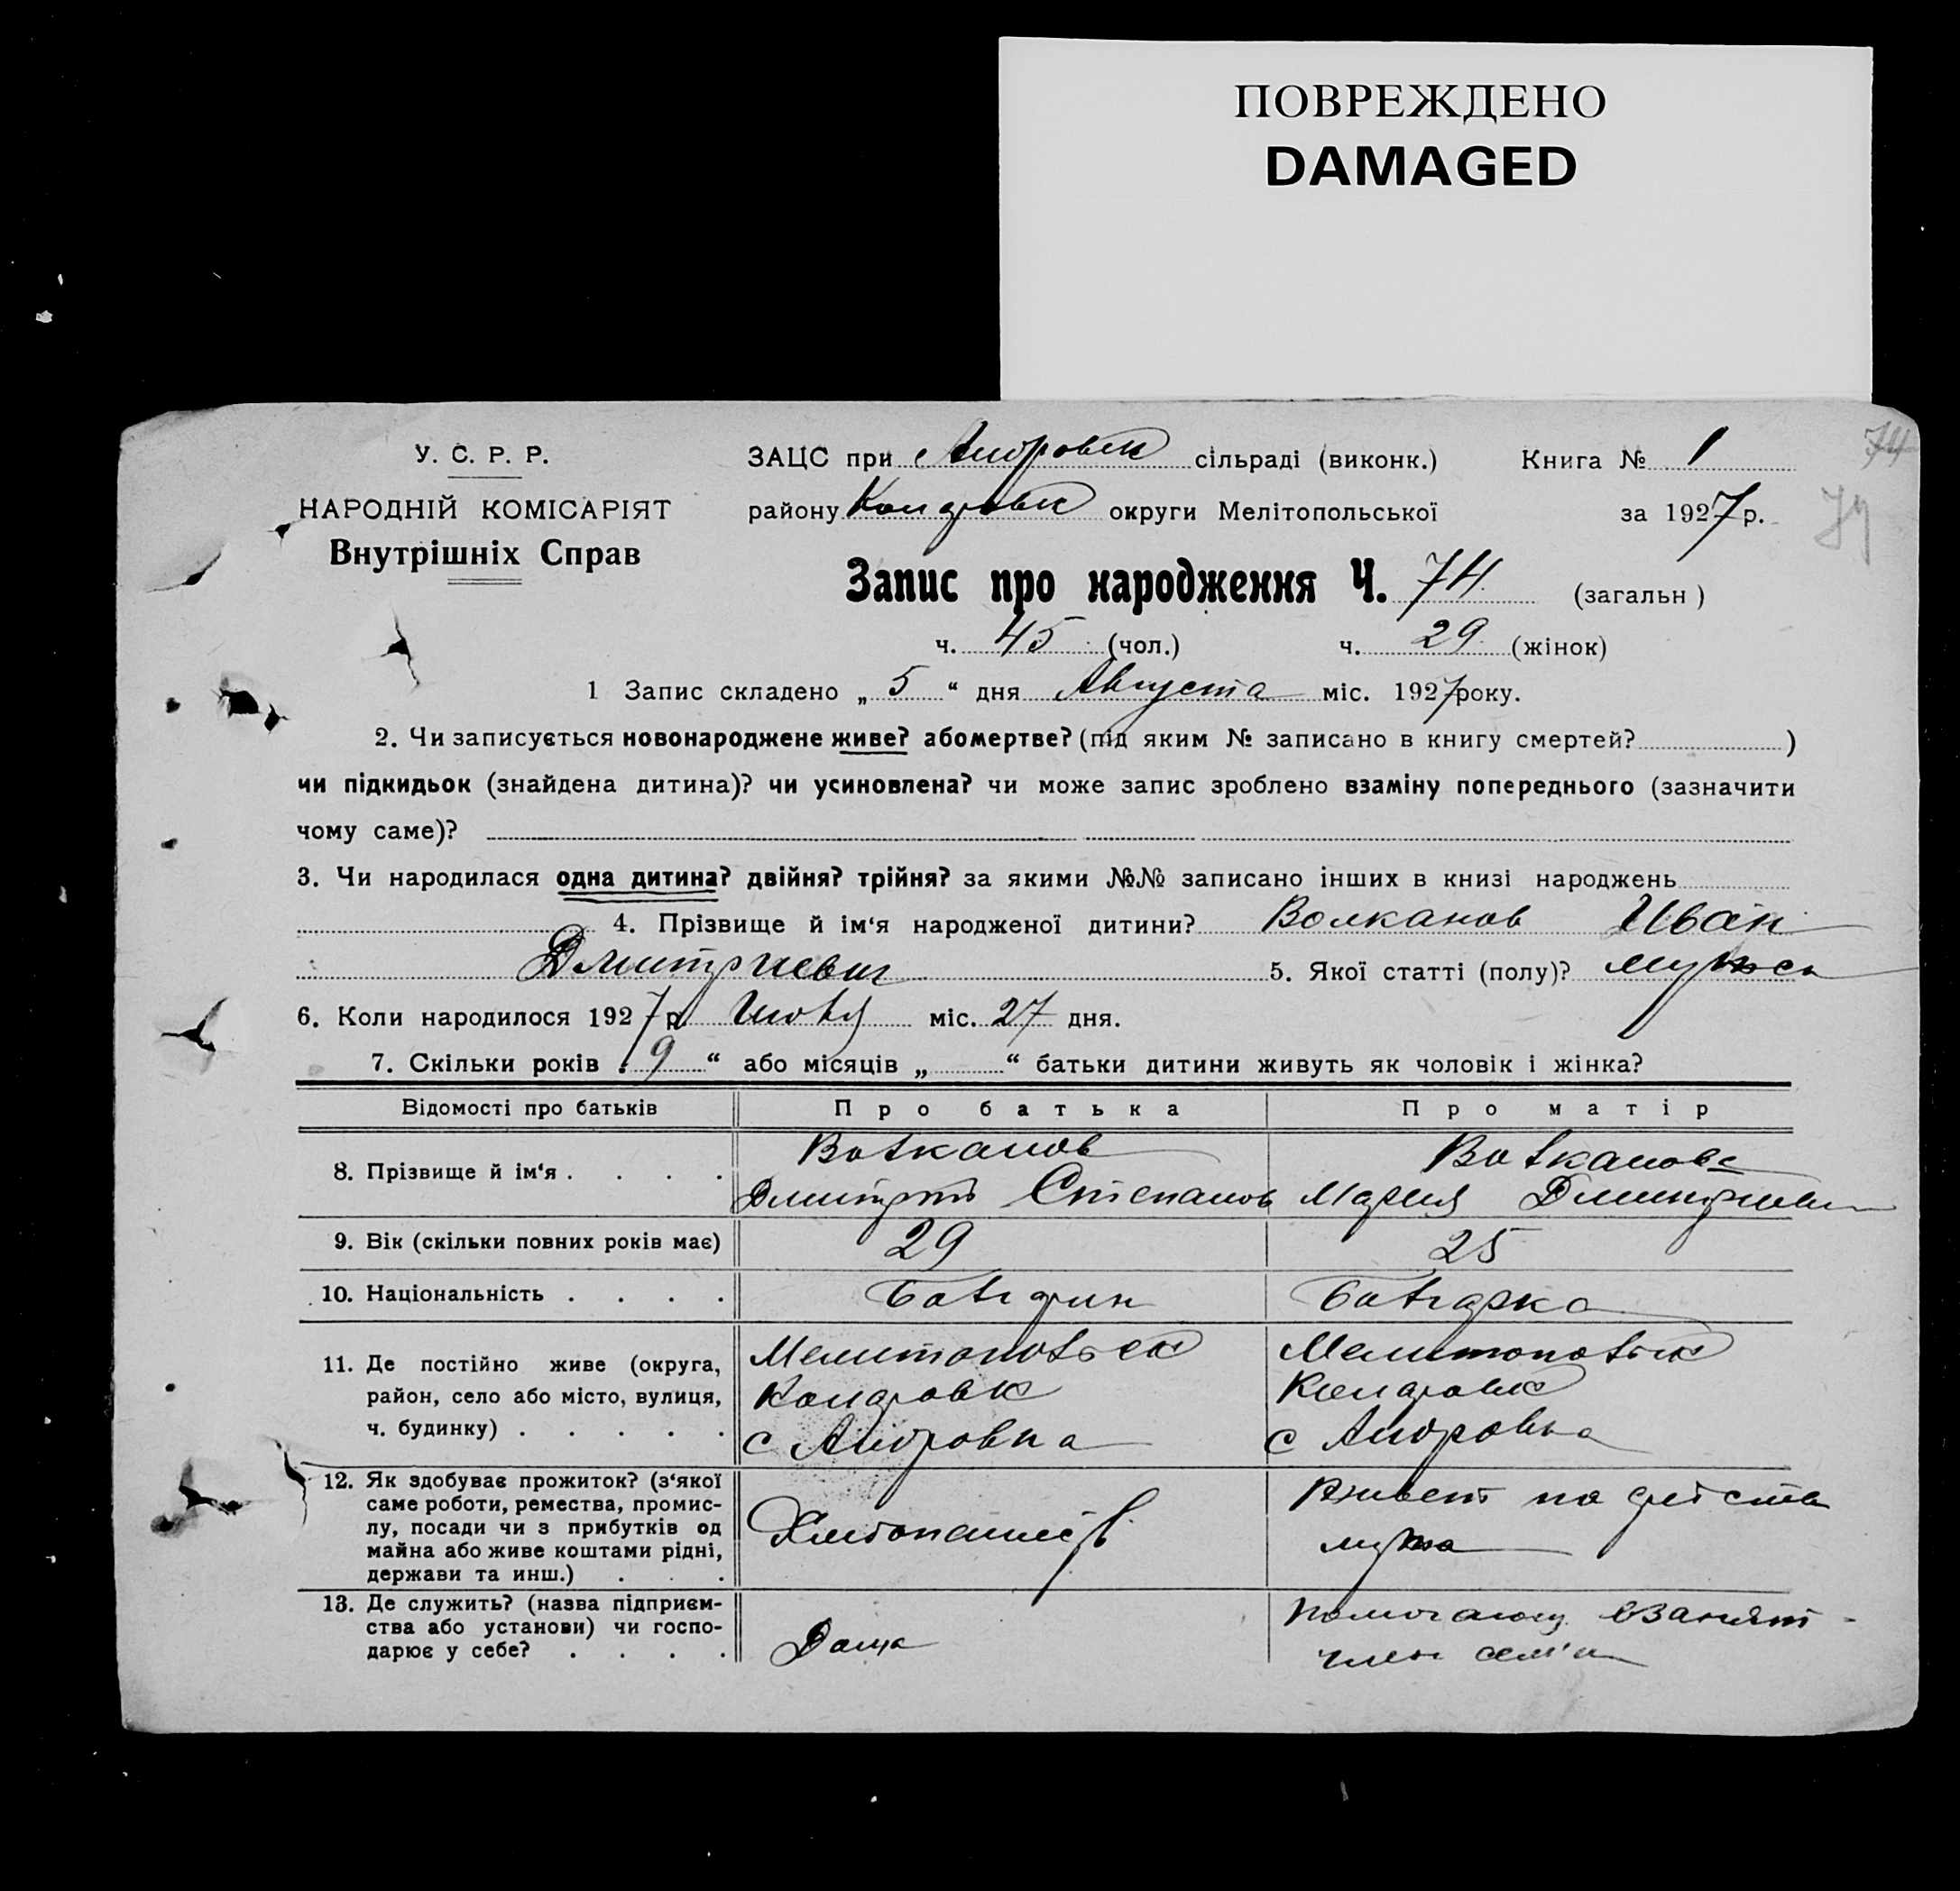 ПОВРЕЖДЕНО
DAMAGED
74
У. С. Р. Р.
НАРОДНІЙ КОМІСАРІЯТ
Внутрішніх Справ
ЗАЦС при Андровск сільраді (виконк.) Книга № 1
району округи Мелітопольської за 1927 р.
Запис про народження Ч. 74 (загальн)
ч. 45 (чол.) ч. 29 (жінок)
1 Запис складено „ 5 “ дня Августа міс. 1927 року.
2. Чи записується новонароджене живе? або мертве? (під яким № записано в книгу смертей? )
чи підкидьок (знайдена дитина)? чи усиновлена? чи може запис зроблено взаміну попереднього (зазначити
чому саме)?
3. Чи народилася одна дитина? двійня? трійня? за якими №№ записано інших в книзі народжень
4. Прізвище й ім‘я народженої дитини? Волканов Иван
Дмитриевич 5. Якої статті (полу)? мужск
6. Коли народилося 1927 р. Июля міс. 27 дня.
7. Скільки років „ 9 “ або місяців „ “ батьки дитини живуть як чоловік і жінка?
Відомості про батьків Про батька Про матір
8. Прізвище й ім‘я . . . . Волканов Волканова
Дмитрий Степанов Мария Дмитриевн
9. Вік (скільки повних років має) 29 25
10. Національність . . . . Болгарин Болгарка
11. Де постійно живе (округа, Мелитопольск Мелитопольск
район, село або місто, вулиця,
ч. будинку) . . . . . с Андровка с Андровка
12. Як здобуває прожиток? (з‘якої
саме роботи, ремества, промис-
лу, посади чи з прибутків од
майна або живе коштами рідні,
держави та инш.) . . . Хлебопашест живет на средства
мужа
13. Де служить? (назва підприєм-
ства або установи) чи госпо-
дарює у себе? . . . . Дома помогающ. взанят
член семьи